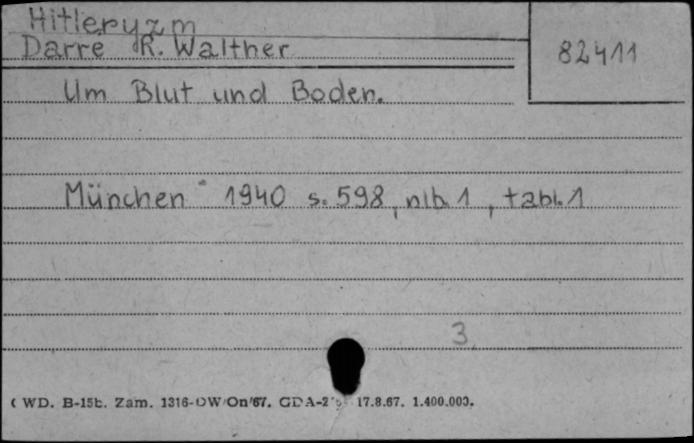 Hitleryzm
Darre R. Walther
82411
Um Blut und Boden.
München 1940 s. 598, nlb. 1, tabl. 1
3
WD. B-15b. Zam. 1316-OW/On/67. GDA-2 17.8.67. 1.400.000.